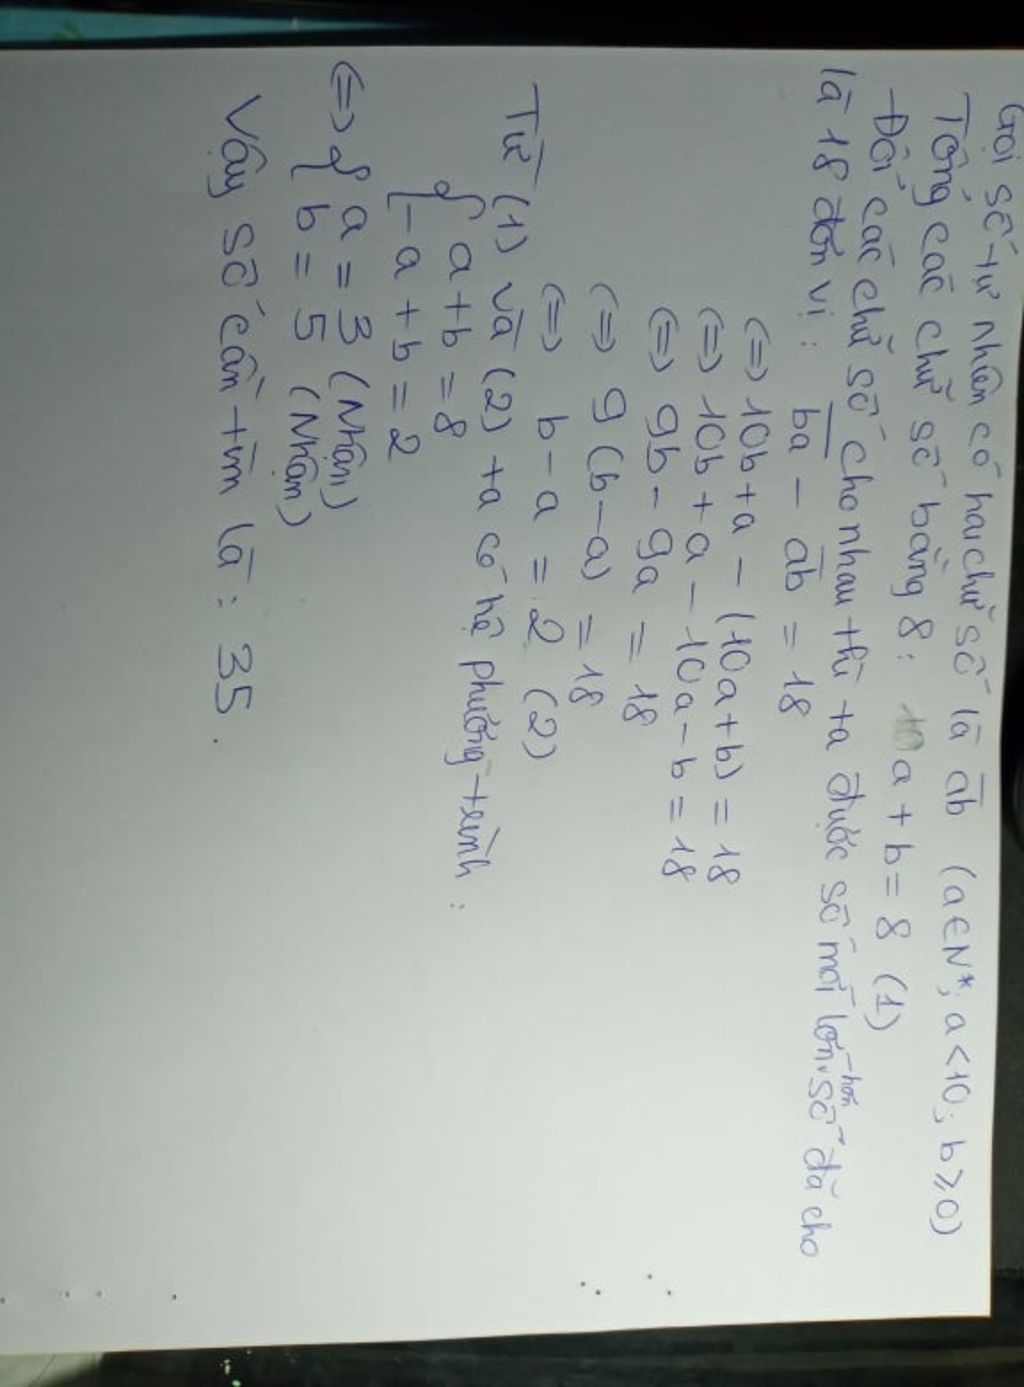 Gọi số tự nhiên có hai chữ số là ab (a∈N*; a<10; b≥0)
Tổng các chữ số bằng 8: a + b = 8 (1)
Đổi các chữ số cho nhau thì ta được số mới lớn hơn số đã cho
là 18 đơn vị: b̅a̅ - a̅b̅ = 18
⇔ 10b + a - (10a + b) = 18
⇔ 10b + a - 10a - b = 18
⇔ 9b - 9a = 18
⇔ 9 (b - a) = 18
⇔ b - a = 2 (2)
Từ (1) và (2) ta có hệ phương trình:
{ a + b = 8
-a + b = 2
⇔ { a = 3 (Nhận)
b = 5 (Nhận)
Vậy số cần tìm là: 35.